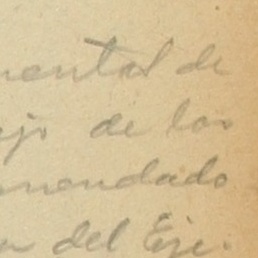 mental de
ajo de los
omendado
del Eje.